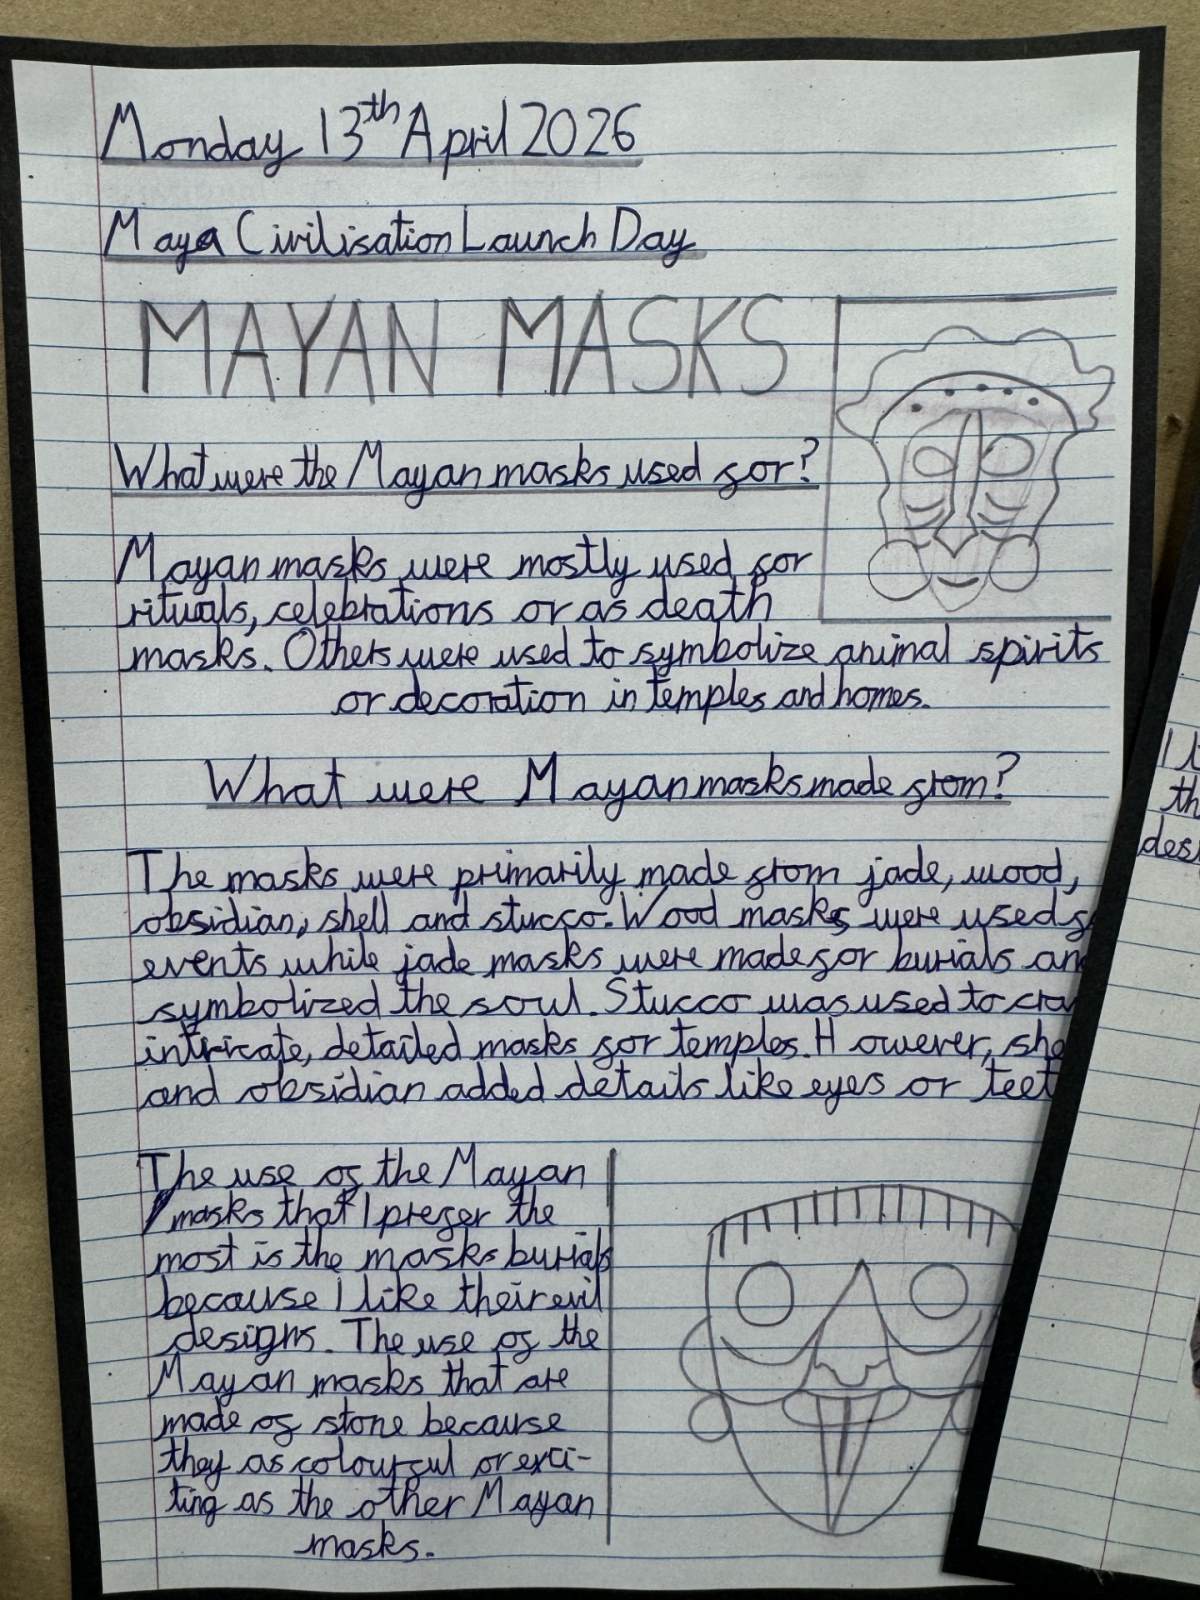 Monday 13th April 2026
Maya Civilisation Launch Day
MAYAN MASKS
What were the Mayan masks used for?
Mayan masks were mostly used for
rituals, celebrations or as death
masks. Others were used to symbolize animal spirits
or decoration in temples and homes.
What were Mayan masks made from?
The masks were primarily made from jade, wood,
obsidian, shell and stucco. Wood masks were used
events while jade masks were made for burials
symbolized the soul. Stucco was used to
intricate, detailed masks for temples. However,
and obsidian added details like eyes or
The use of the Mayan
masks that I prefer the
most is the masks burials
because I like their evil
designs. The use of the
Mayan masks that are
made of stone because
they as colourful or exci-
ting as the other Mayan
masks.